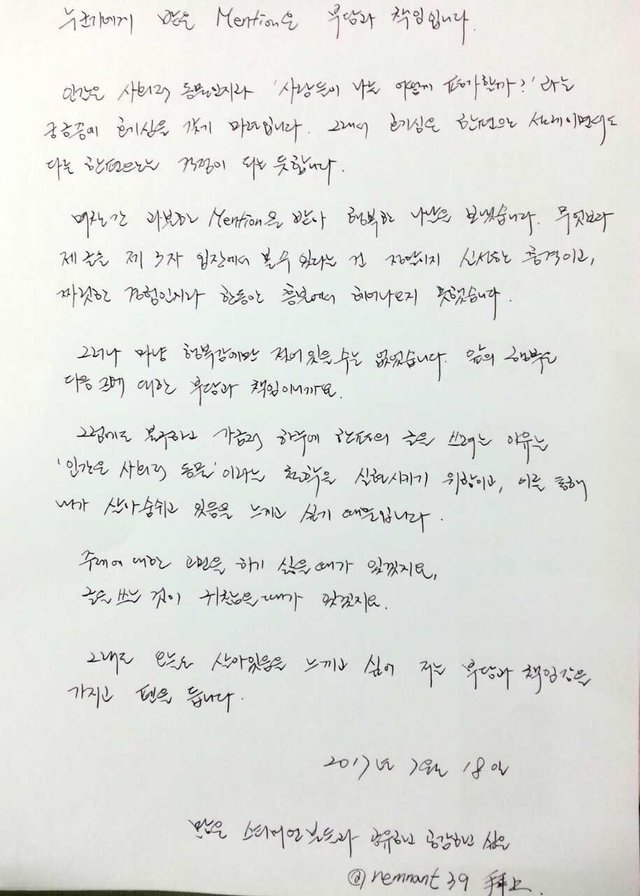 누군가에게 받은 Mention은 부담과 책임입니다.
인간은 사회적 동물인지라 '사람들이 나를 어떻게 평가할까?' 라는
궁금증에 호기심을 갖기 마련입니다. 그래서 호기심은 한편으론 설레이면서도
다른 한편으로는 걱정이 되는 듯합니다.
며칠간 과분한 Mention을 받아 행복한 나날을 보냈습니다. 무엇보다
제 글을 제 3자 입장에서 볼 수 있다는 건 자연이지 신선한 충격이고,
짜릿한 경험인지라 한동안 흥분에서 헤어나오지 못했습니다.
그러나 마냥 행복감에만 젖어있을 수는 없었습니다. 앞의 행복은
다음 글에 대한 부담과 책임이니까요.
그럼에도 불구하고 가급적 하루에 한편의 글을 쓰려는 이유는
'인간은 사회적 동물' 이라는 철학을 실현시키기 위함이고, 이를 통해
내가 살아숨쉬고 있음을 느끼고 싶기 때문입니다.
주제에 대한 고민을 하기 싫을때가 있겠지요,
글을 쓰는 것이 귀찮을때가 있겠지요.
그래도 오늘도 살아있음을 느끼고 싶어 저는 부담과 책임감을
가지고 펜을 듭니다.
2017년 7월 18일
많은 스티미언분들과 공유하고 공감하고 싶은
@remnant39 拜上.